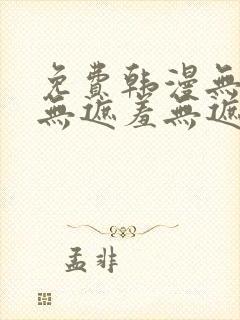 免費韩漫無
無遮羞無遮
孟非